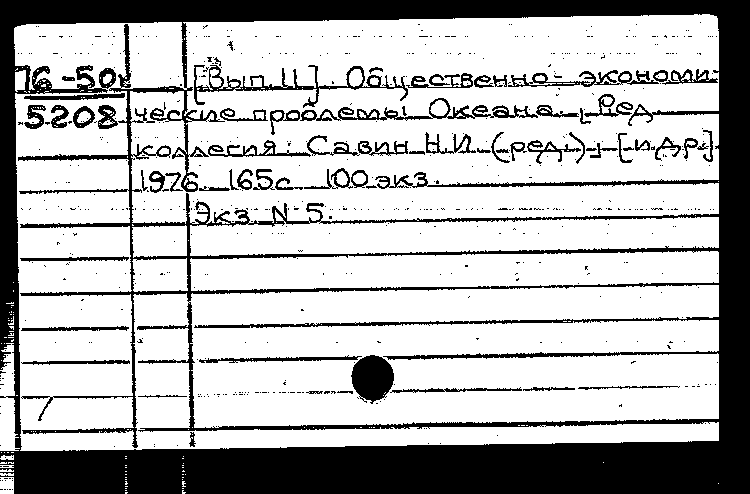 76-50
[Вып. II]. Общественно-экономи-
5208 ческие проблемы Океана. [Ред.
коллегия: Савин Н.И. (ред.) [и др.]
1976. 165с. 100 экз.
Экз. N 5.